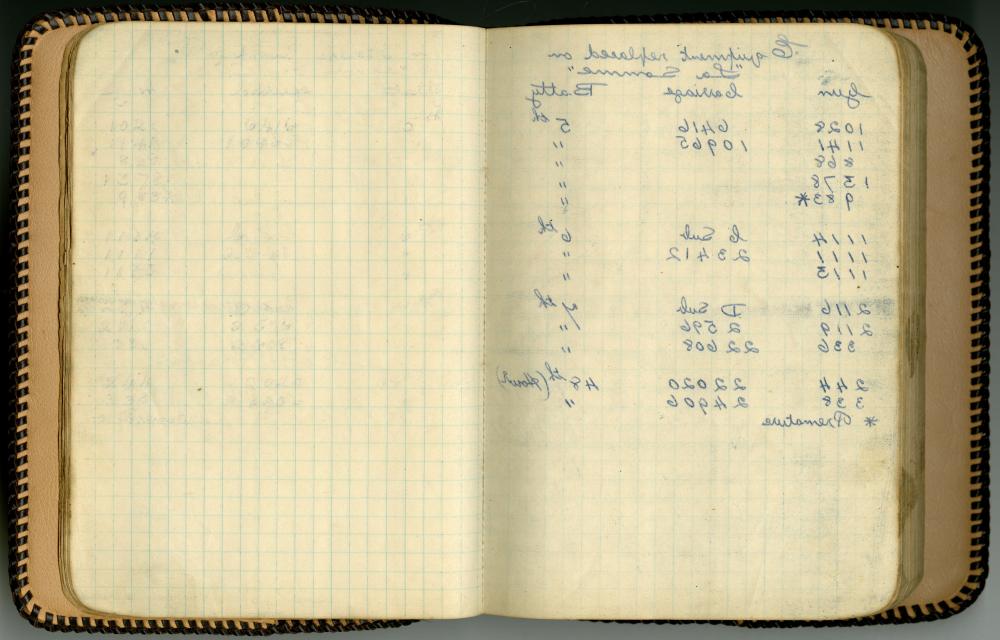 Equipment replaced on
"La Somme"
Gun Carriage Batty
1028 6416 5th
1141 10965 "
868 "
1578 "
983* "
1114 C Sub 6th
1111 23412 "
1115 "
2116 D Sub 7th
2119 2596 "
336 22608 "
244 22020 48th (How)
338 24906 "
* Premature